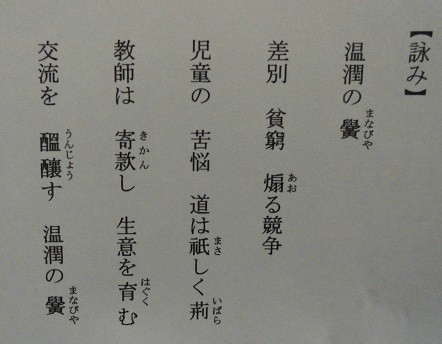 【詠み】
温潤の黌
まなびや
差別　貧窮　煽る競争
あお
児童の　苦悩　道は祇しく荊
まさ
いばら
教師は　寄款し　生意を育む
きかん
はぐく
交流を　醞醸す　温潤の黌
うんじょう
まなびや